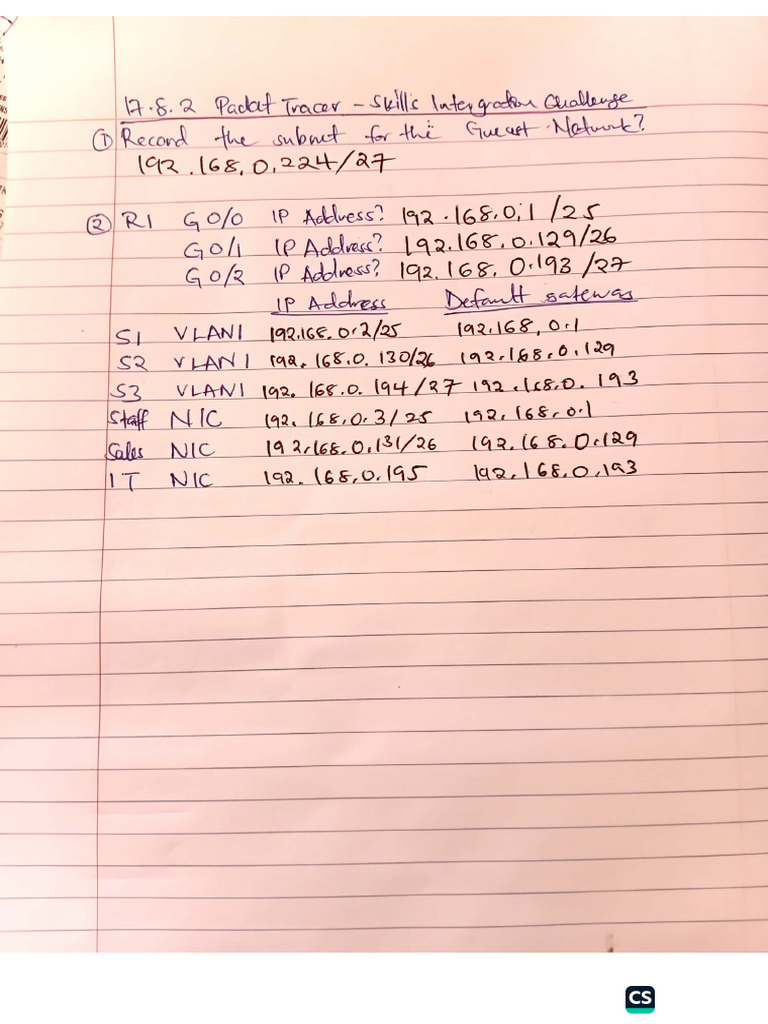 17.8.2 Packet Tracer - Skills Intergration Challenge
① Record the subnet for the Gueast Network?
192.168.0.224/27
② R1 G0/0 IP Address? 192.168.0.1/25
G0/1 IP Address? 192.168.0.129/26
G0/2 IP Address? 192.168.0.193/27
IP Address Default gateway
S1 VLAN1 192.168.0.2/25 192.168.0.1
S2 VLAN1 192.168.0.130/26 192.168.0.129
S3 VLAN1 192.168.0.194/27 192.168.0.193
Staff NIC 192.168.0.3/25 192.168.0.1
Sales NIC 192.168.0.131/26 192.168.0.129
IT NIC 192.168.0.195 192.168.0.193
CS